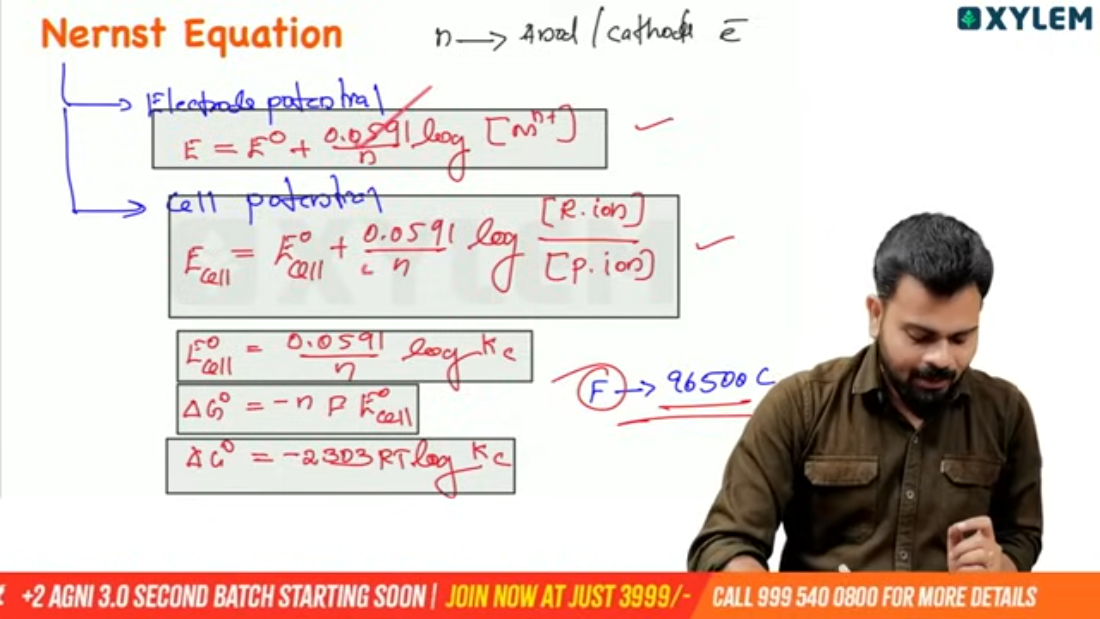 XYLEM
Nernst Equation
n → Anod / cathode ē
Electrode potential
E = E⁰ + 0.0591/n log [Mⁿ⁺]
Cell potential
E⁰cell = E⁰cell + 0.0591/n log [R.ion]/[P.ion]
E⁰cell = 0.0591/n log Kc
F → 96500 C
ΔG⁰ = -n F E⁰cell
ΔG⁰ = -2303 RT log Kc
+2 AGNI 3.0 SECOND BATCH STARTING SOON | JOIN NOW AT JUST 3999/- CALL 999 540 0800 FOR MORE DETAILS